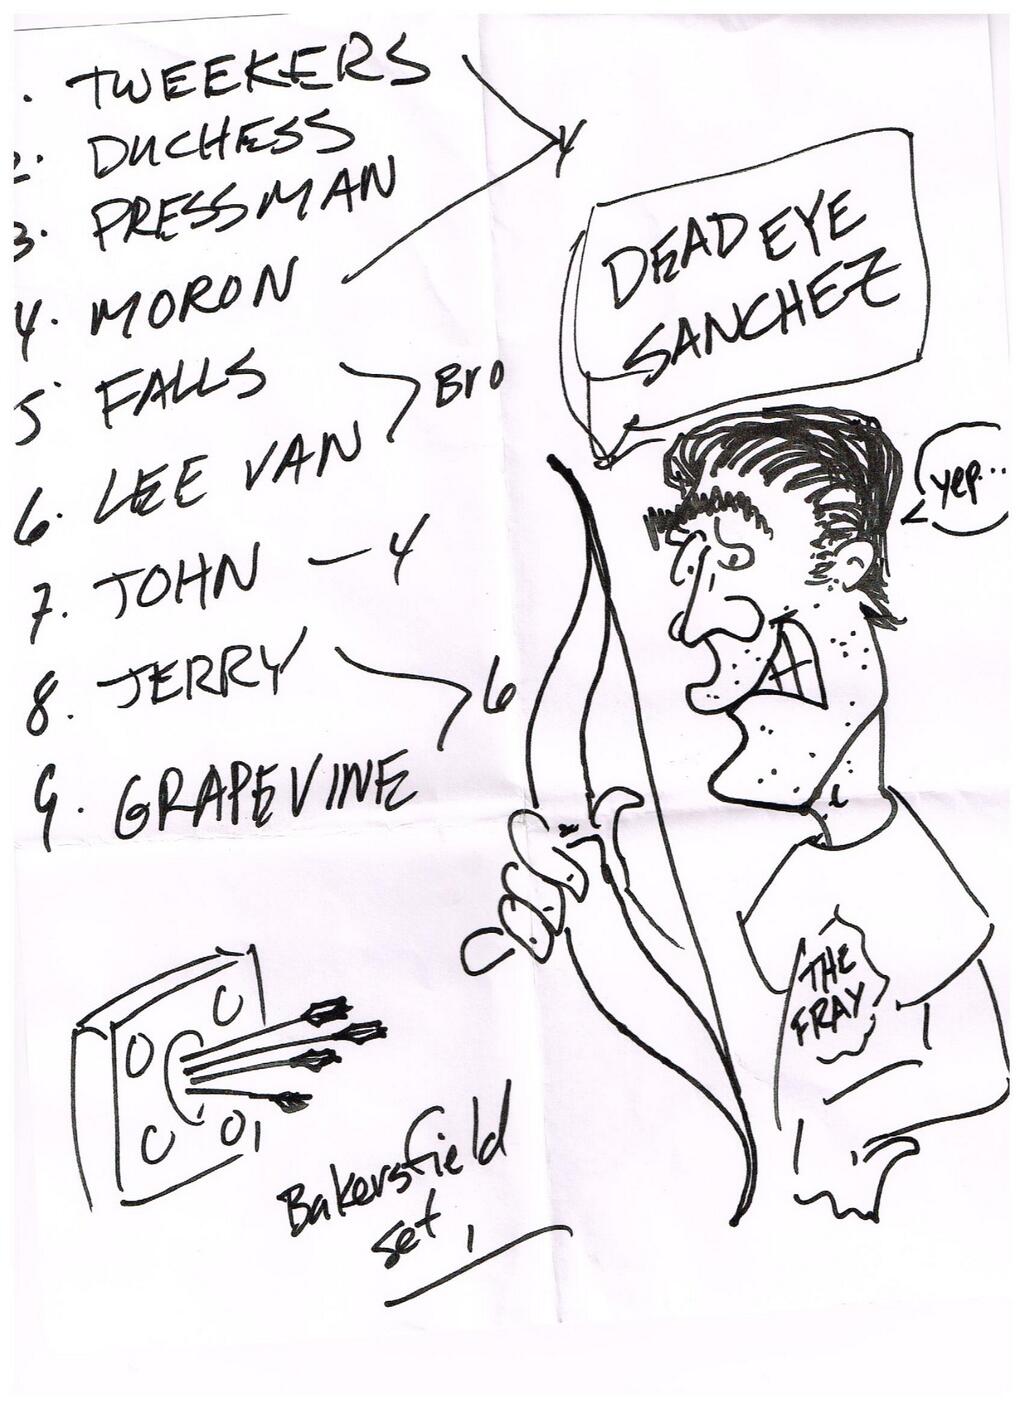 . TWEEKERS
2. DUCHESS
3. PRESSMAN
4. MORON
4
5 FALLS
6. LEE VAN
Bro
7. JOHN — 4
8. JERRY
9. GRAPEVINE
6
DEAD EYE
SANCHEZ
yep...
THE
FRAY
Bakersfield
set,